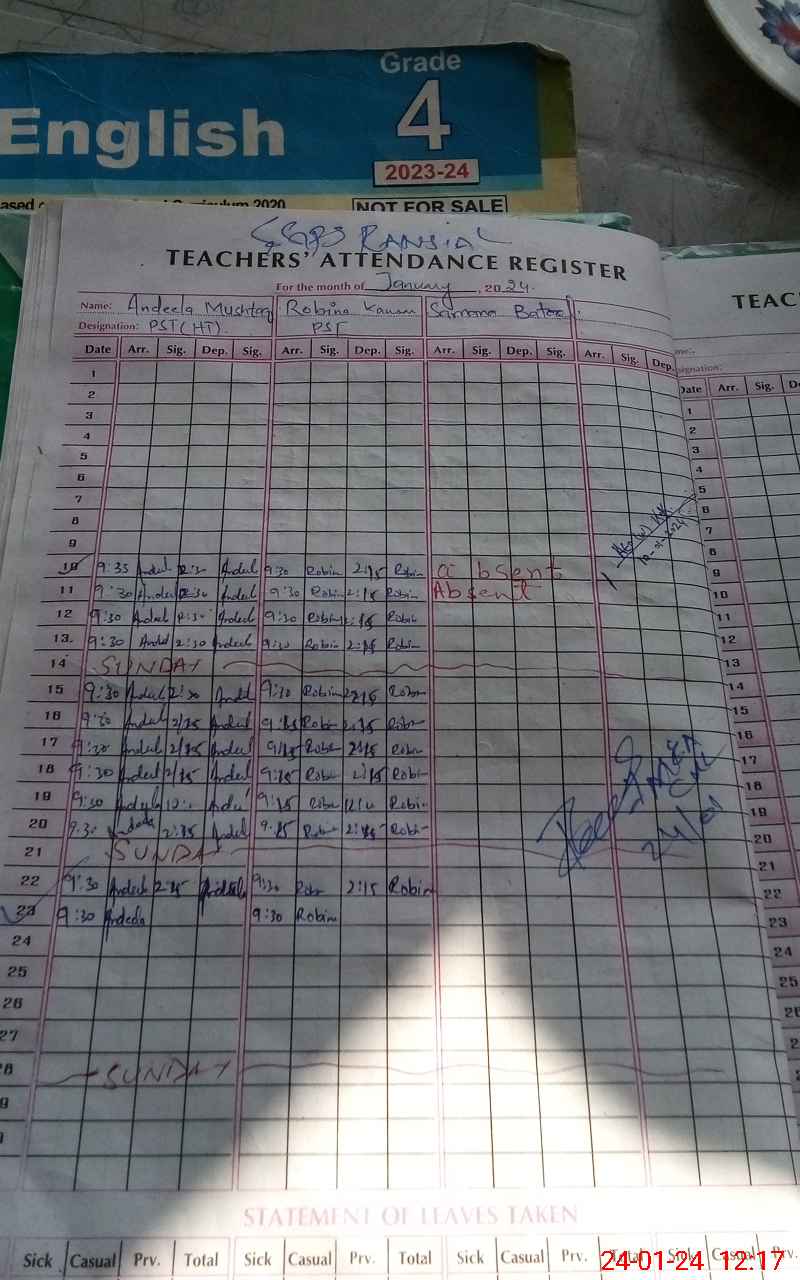 Grade
4
English
2023-24
NOT FOR SALE
GGPS RANSIAL
TEACHERS' ATTENDANCE REGISTER
For the month of January, 2024.
Name: Andeela Mushtaq Robina Kausar
Designation: PST (HT). PST
Date Arr. Sig. Dep. Sig. Arr. Sig. Dep. Sig. Arr. Sig. Dep. Sig. Arr. Sig. Dep.
1
2
3
4
5
6
7
8
9
10 9:35 Andeel 2:30 Andeel 9:30 Robin 2:15 Robin absent
11 9:30 Andeel 2:30 Andeel 9:30 Robin 2:15 Robin Absent
12 9:30 Andeel 2:30 Andeel 9:30 Robin 2:15 Robin
13. 9:30 Andeel 2:30 Andeel 9:30 Robin 2:15 Robin
14 SUNDAY
15 9:30 Andeel 2:30 Andeel 9:30 Robin 2:15 Robin
16 9:30 Andeel 2/15 Andeel 9:15 Robin 2:15 Robin
17 9:30 Andeel 2/15 Andeel 9/15 Robin 2:15 Robin
18 9:30 Andeel 2/15 Andeel 9:15 Robin 2:15 Robin
19 9:30 Andeel Andeel 9:15 Robin Robin
20 9.30 Andeela 2:15 Andeel 9.15 Robin 2:15 Robin
21 SUNDAY
22 9:30 Andeela 2:15 Andeela 9:30 Robin 2:15 Robin
23 9:30 Andeela 9:30 Robin
24
25
26
27
28 SUNDAY
MEA
24/01
STATEMENT OF LEAVES TAKEN
Sick Casual Prv. Total Sick Casual Prv. Total Sick Casual Prv. Total Sick Casual Prv.
TEAC
Date Arr. Sig.
1
2
3
4
5
6
7
8
9
10
11
12
13
14
15
16
17
18
19
20
21
22
23
24
25
24-01-24 12:17